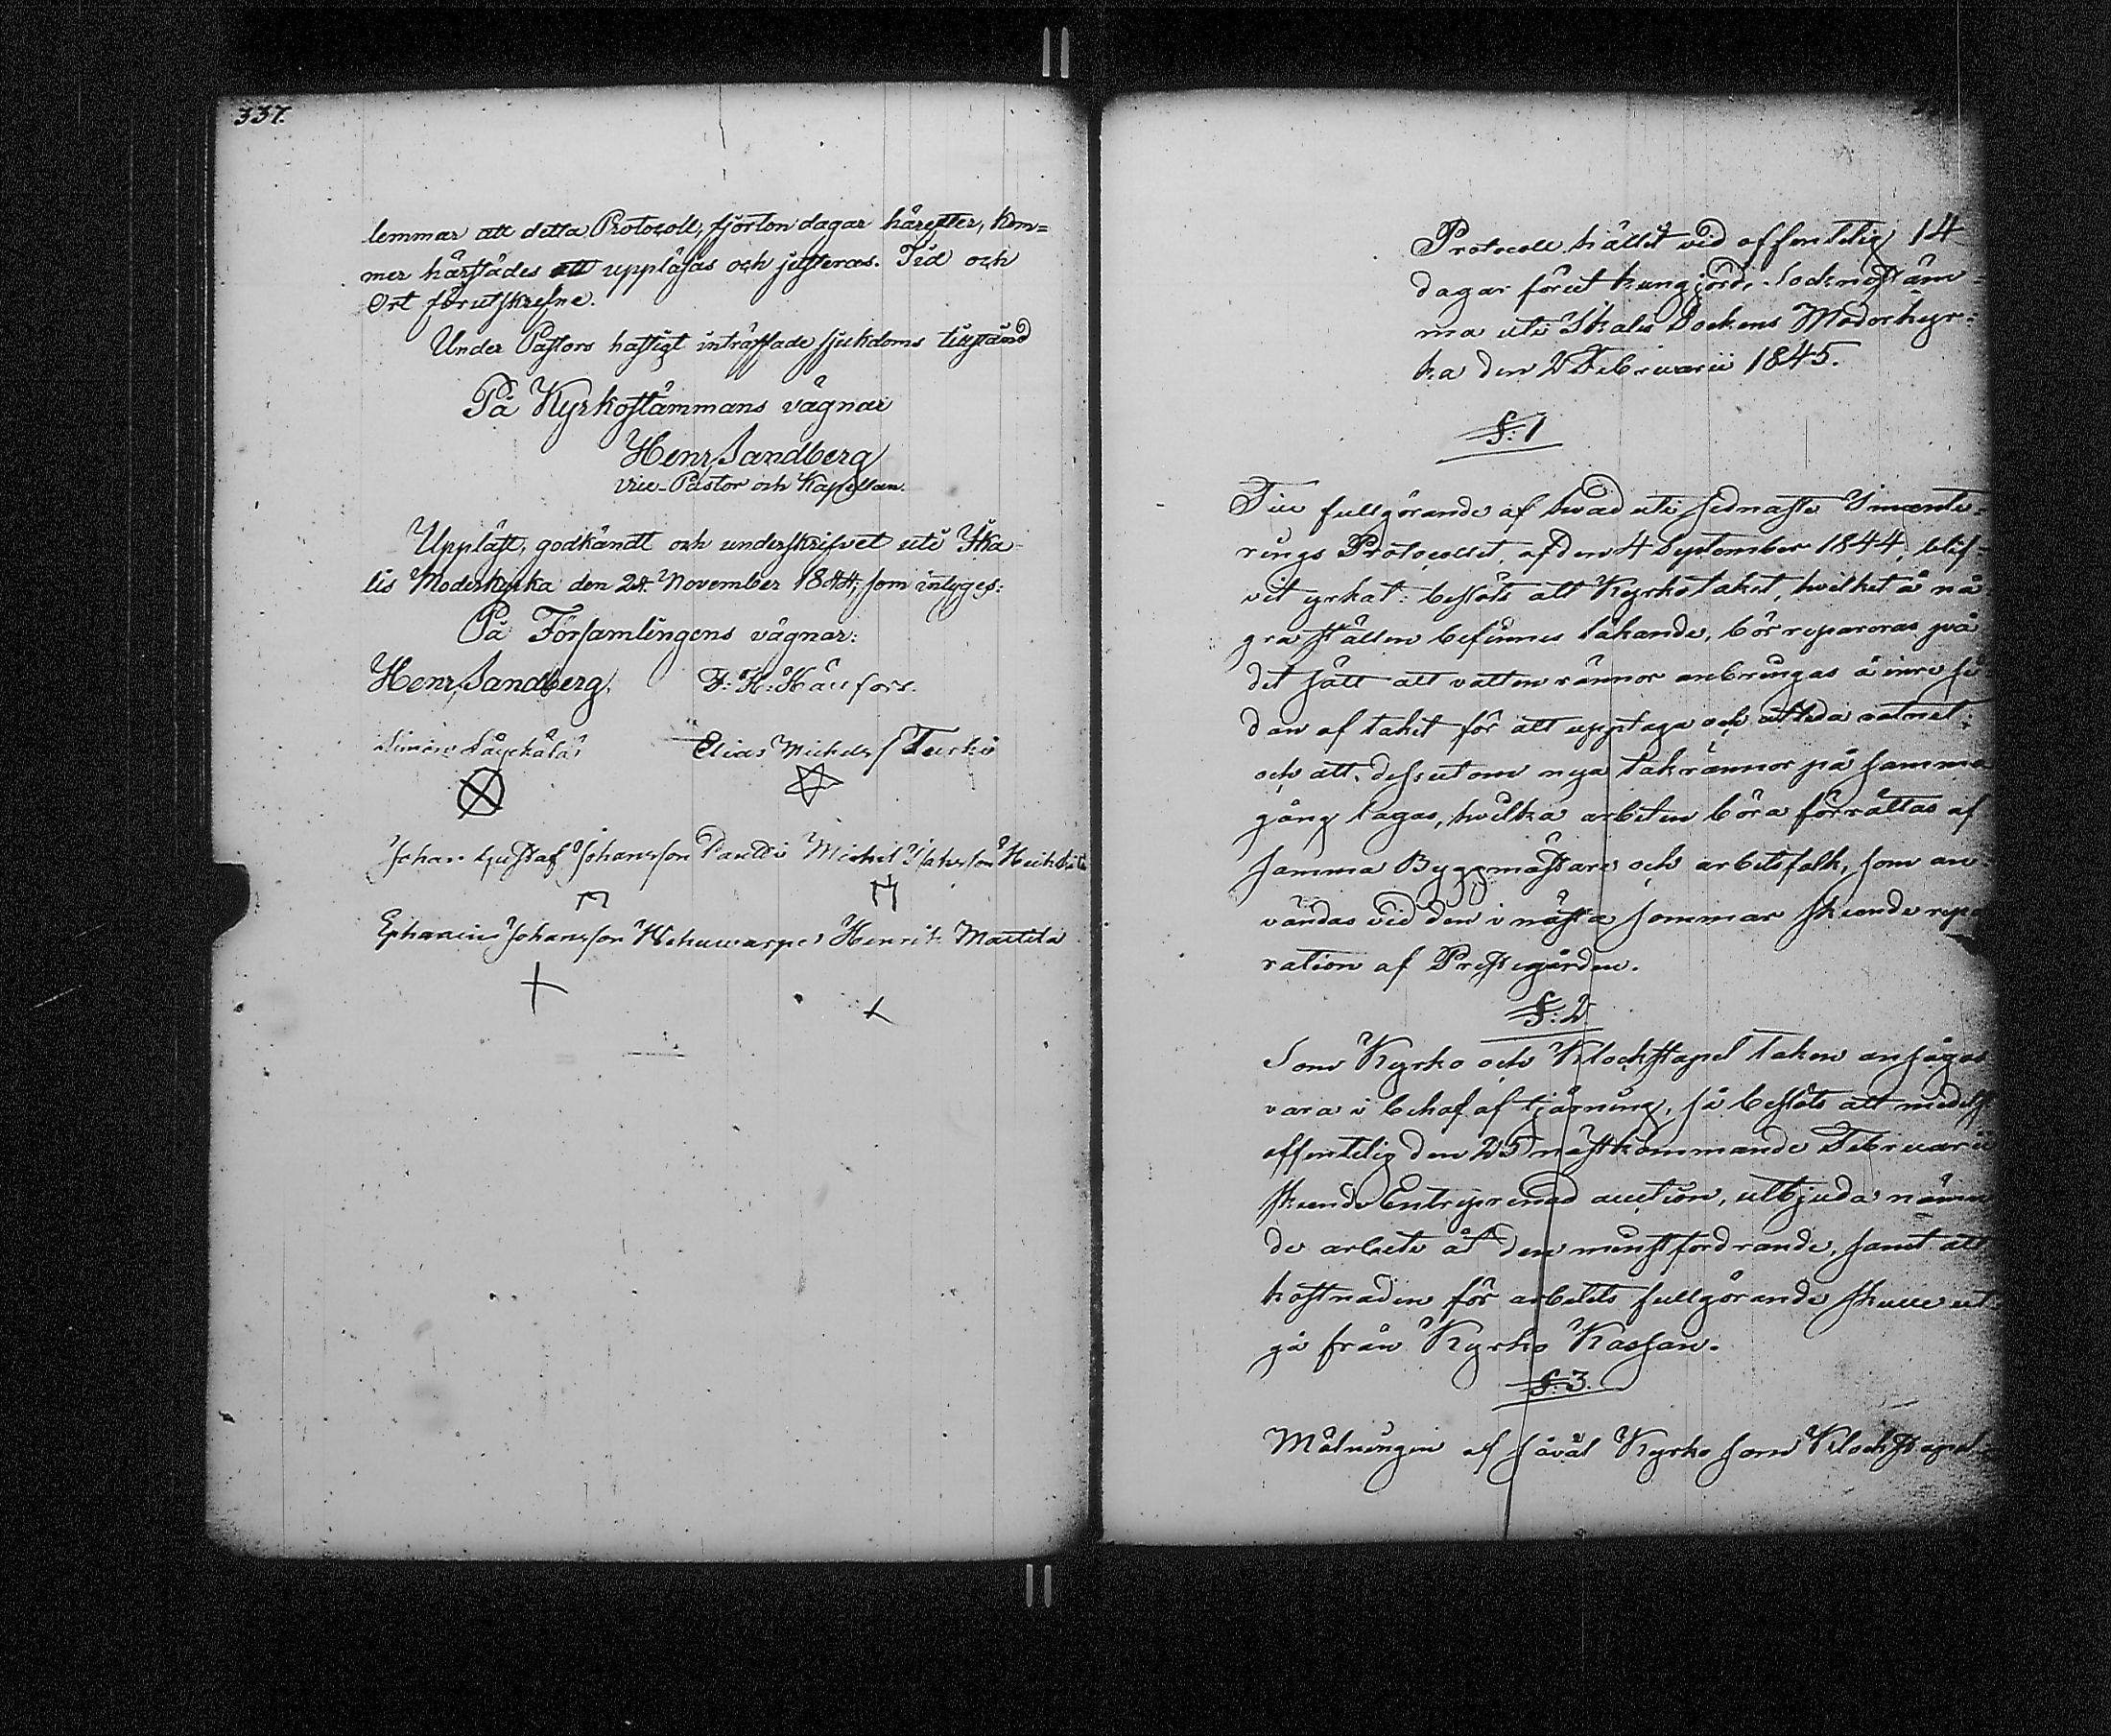 337.
lemmar att detta Protocoll, fjorton dagar härefter, kom=
mer härstädes att uppläsas och justeras. Tid och
Ort förutskrefne.
Under Pastors hastigt inträffade sjukdoms tillstånd
På Kyrkostämmans vägnar
Henr Sandberg
vice-Pastor och Kapellan.
Uppläst, godkändt och underskrifvet uti Ika=
lis Moderkyrka den 24. November 1844, som intyges:
På Församlingens vägnar:
Henr Sandberg. F: H:
Simon Elias Michelss Turki
Johan Gustaf Johansson Michel
Johansson Henrik Mattila
Protocoll hållit vid offentelig 14
dagar förut kungjord, Sockнestäm=
ma uti Ikalis Sockens Moderkyr=
ka den 2 Februarii 1845.
§: 1
Till fullgörande af hvad uti sednaste Invente=
rings Protocollet, af den 4 September 1844, blif=
vit yrkat: beslöts att Kyrkotaket, hvilket å nå
gra ställen befinnes läkande, bör repareras på
det sätt att vatten rännor anbringas å inre si
dan af taket för att upptaga och utleda vatnet:
och att dessutom nya takrännor på samma
gång lagas, hvilka arbeten böra förrättas af
samma Byggmästare och arbetsfolk, som an=
vändas vid den i nästa sommar skeende repa
ration af Prestegården.
§: 2
Som Kyrko och Klockstapel taken ansågos
vara i behof af tjärning, så beslöts att medelst
offentelig den 25 nästkommande Februarii
skeende Entreprenad auction, utbjuda nämn
de arbete åt den minstfordrande, samt att
kostnaden för arbetets fullgörande skulle ut
gå från Kyrko Kassan.
§: 3.
Målningen af såväl Kyrko som Klockstapel=